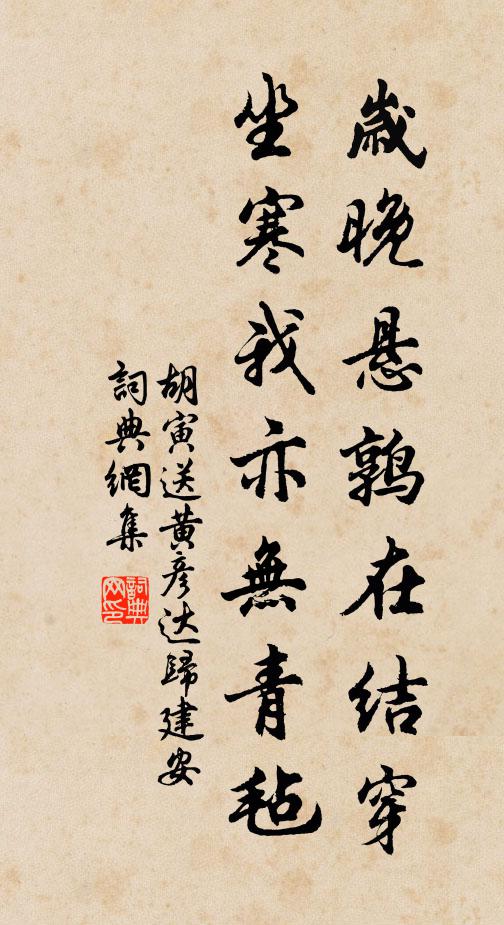 歲晚悬鶉在结穿
坐寒我亦無青毡
胡寅送黄彥达歸建安
詞典網集
詞典网印